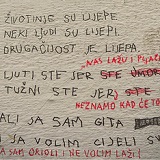 ŽIVOTINJE SU LIJEPE
NEKI LJUDI SU LIJEPI
DRUGAČIJOST JE LIJEPA
NAS LAŽU I PLJAČ
LJUTI STE JER STE UMOR
TUŽNI STE JER STE
NEZNAMO KAD ĆE TO
ALI JA SAM GITA
JA VOLIM CIJELI S
JA SAM ORIOLI I NE VOLIM LAŽI